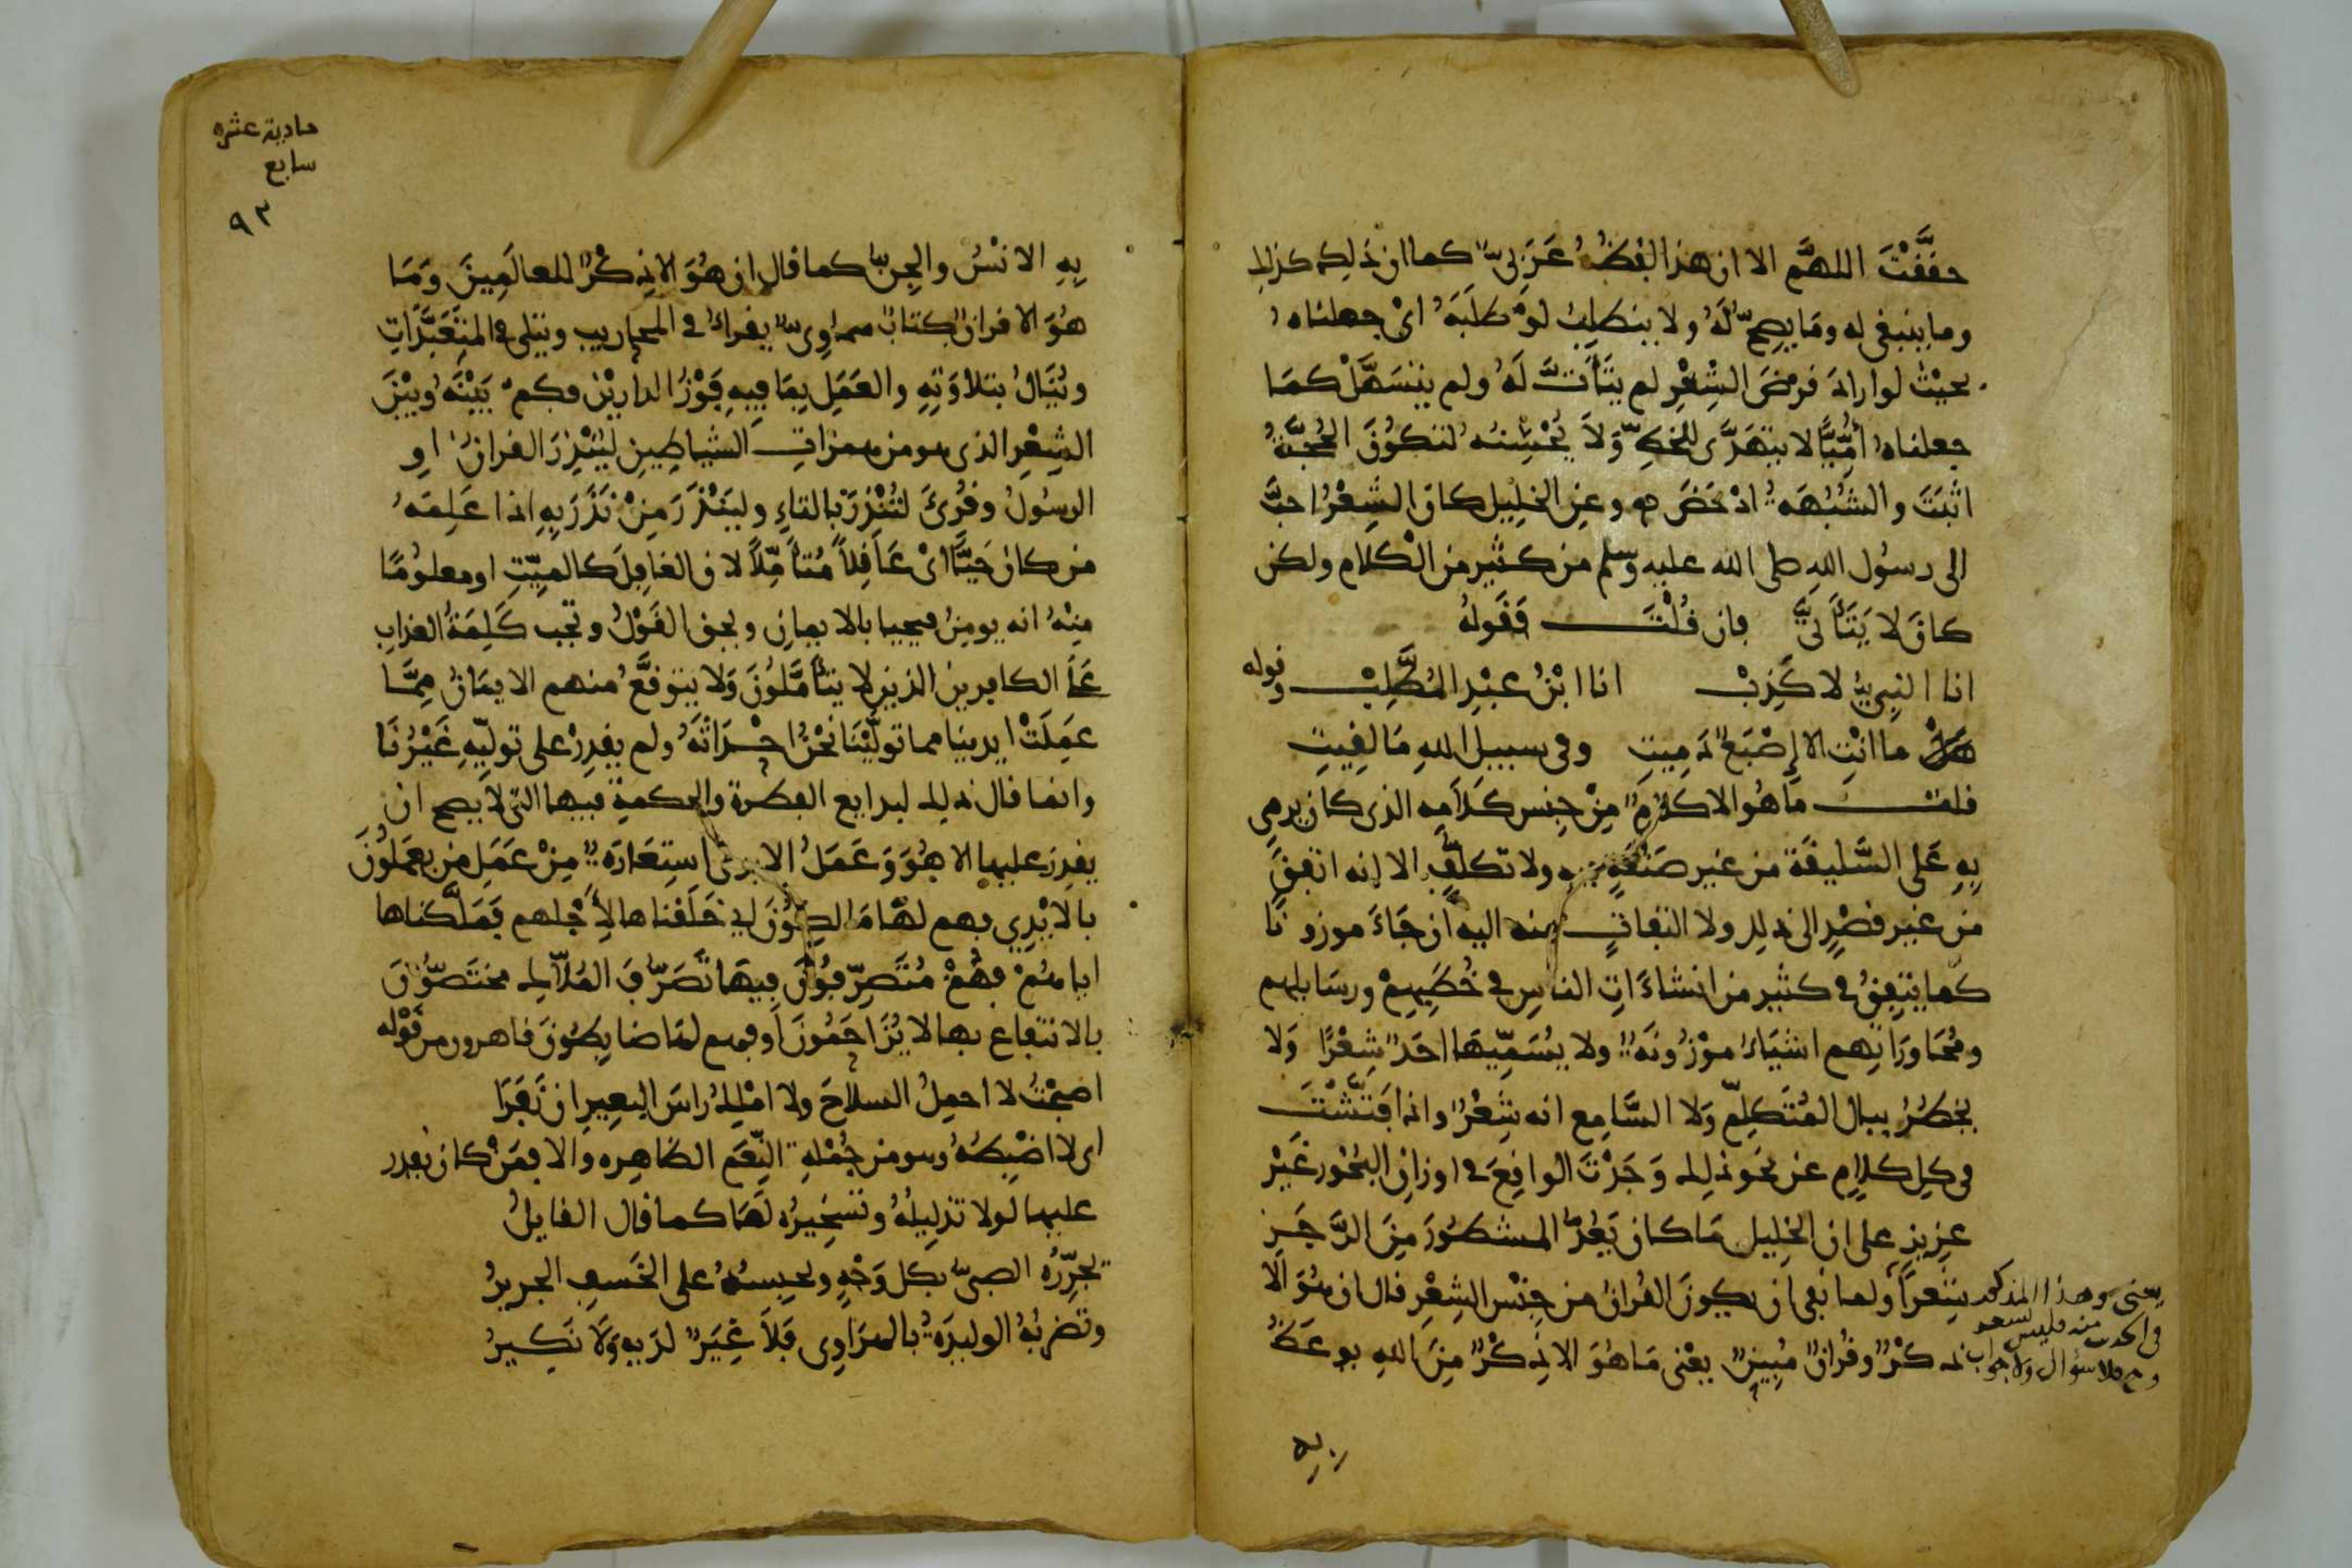 حققت اللهم الا ان هذا اللفظ عربى كما ان ذلك كذلك
وما ينبغى له وما يصح له ولا ينطلب لو طلبه اى جعلناه
بحيث لو اراد قرض الشعر لم يتأت له ولم يتسهل كما
جعلناه أميا لا يتهدى للخط ولا يحسنه لتكون الحجة
اثبت والشبهة ادحض وعن الخليل كان الشعر احب
الى رسول الله صلى الله عليه وسلم من كثير من الكلام ولكن
كان لا يتأتى فان قلت فقوله
انا النبي لا كذب انا ابن عبد المطلب وقوله
هل ما انت الا إصبع دميت وفى سبيل الله ما لقيت
قلت ما هو الا كلام من جنس كلامه الذى كان يرمى
به على السليقة من غير صنعة فيه ولا تكلف الا انه اتفق
من غير قصد الى ذلك ولا التفات منه اليه ان جاء موزونا
كما يتفق فى كثير من انشاءات الناس فى خطبهم ورسايلهم
ومحاوراتهم اشياء موزونة ولا يسميها احد شعرا ولا
يخطر ببال المتكلم ولا السامع انه شعر واذا فتشت
فى كل كلام عن نحو ذلك وجدت الواقع فى اوزان البحور غير
عزيز على ان الخليل ما كان يعد المشطور من الرجز
شعرا ولما نفى ان يكون القران من جنس الشعر قال ان هو الا
ذكر وقران مبين يعنى ما هو الا ذكر من الله يوعظ
يعنى وهذا المذكور
فى الحديث منه فليس بشعر
وح فلا سؤال ولا جواب
به
حادية عشره
سابع
٩٣
به الانس والجن كما قال ان هو الا ذكر للعالمين وما
هو الا قران كتاب سماوى يقرأ فى المحاريب ويتلى فى المتعبدات
وينال بتلاوته والعمل بما فيه فوز الدارين فكم بينه وبين
الشعر الذى هو من همزات الشياطين لينذر القران او
الرسول وقرئ لتنذر بالتاء ولينذر من نذر به اذا علمه
من كان حيا اى عاقلا متأملا لان الغافل كالميت او معلوما
منه انه يومن فيحيا بالايمان ويحق القول وتجب كلمة العذاب
على الكافرين الذين لا يتأملون ولا يتوقع منهم الايمان مما
عملت ايدينا مما تولينا نحن احداثه ولم يقدر على توليه غيرنا
وانما قال ذلك لبدايع الفطرة والحكمة فيها التى لا يصح ان
يقدر عليها الا هو وعمل الايدى استعارة من عمل من يعملون
بالايدى فهم لها مالكون اى خلقناها لأجلهم فملكناها
اياهم فهم متصرفون فيها تصرف الملاك مختصون
بالانتفاع بها لا يزاحمون او فهم لها ضابطون قاهرون من قوله
اصبحت لا احمل السلاح ولا املك راس البعير ان نفرا
اى لا اضبطه وهو من جملة النعم الظاهره والا فمن كان يقدر
عليها لولا تذليله وتسخيره لها كما قال القايل
يجرره الصبى بكل وجه ويحبسه على الخسف الجرير
وتضربه الوليدة بالهراوى فلا غير لديه ولا نكير